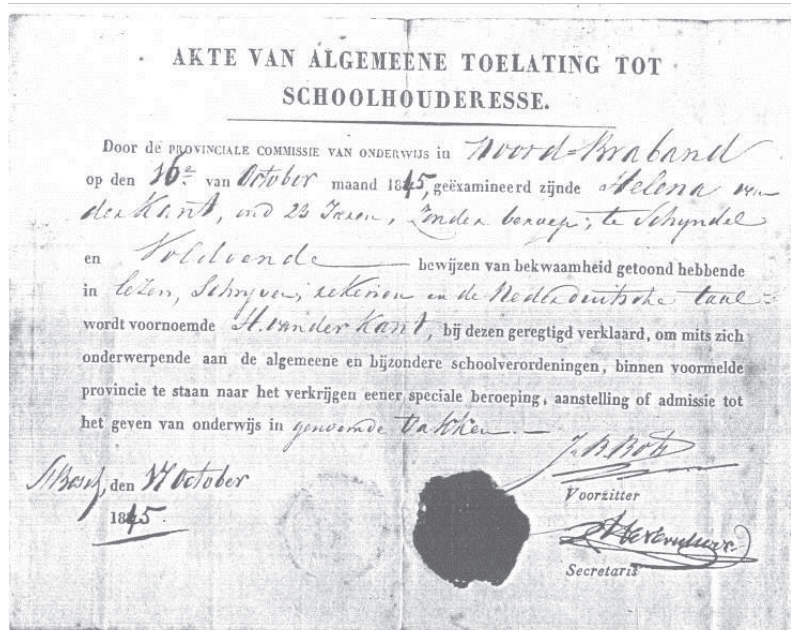 AKTE VAN ALGEMEENE TOELATING TOT
SCHOOLHOUDERESSE.
Door de PROVINCIALE COMMISSIE VAN ONDERWIJS in Noord=Braband
op den 16e. van October maand 1845, geëxamineerd zijnde Helena van
der Kant, oud 23 Jaren, Zonder beroep, te Schyndel
en Voldoende bewijzen van bekwaamheid getoond hebbende
in lezen, Schryven, rekenen en de Nederduitsche taal
wordt voornoemde H. van der Kant, bij dezen geregtigd verklaard, om mits zich
onderwerpende aan de algemeene en bijzondere schoolverordeningen, binnen voormelde
provincie te staan naar het verkrijgen eener speciale beroeping, aanstelling of admissie tot
het geven van onderwijs in genoemde vakken.
den 17 October
1845.
Voorzitter
Secretaris